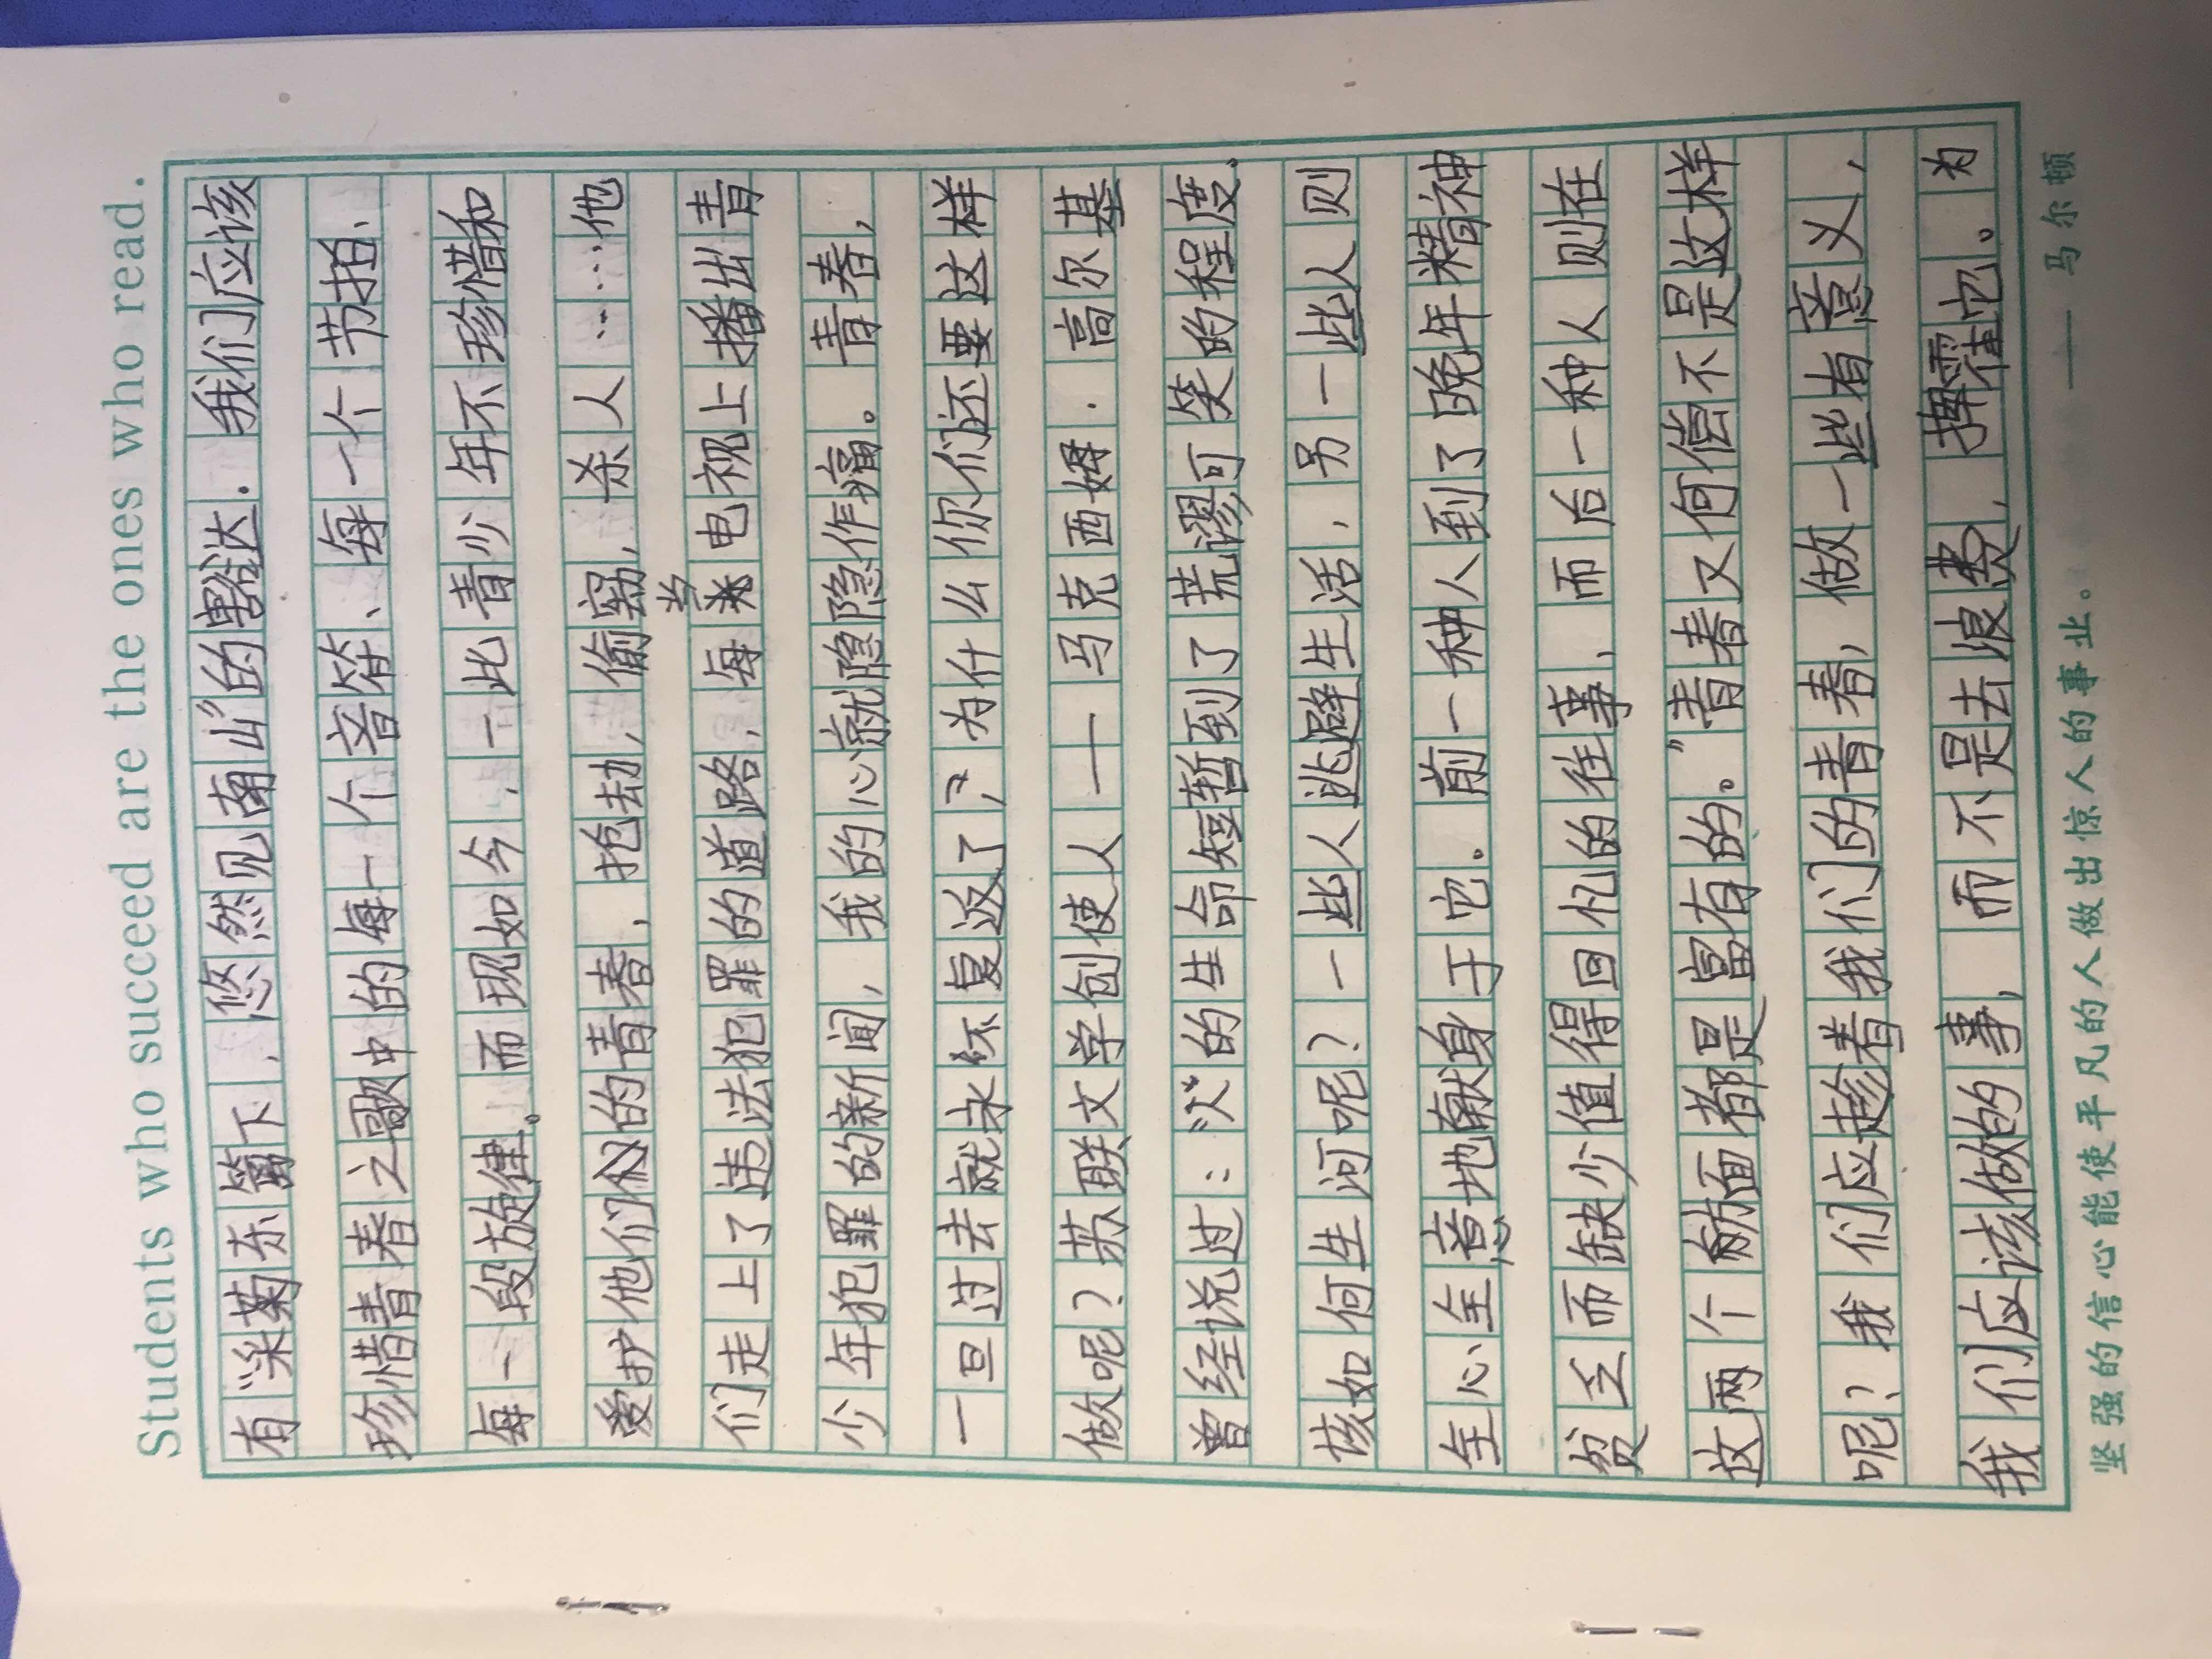 Students who succeed are the ones who read.
有“采菊东篱下，悠然见南山”的豁达．我们应该
珍惜青春之歌中的每一个音符、每一个节拍、
每一段旋律。而现如今，一些青少年不珍惜和
爱护他们的青春，抢劫，偷窃，杀人……他
们走上了违法犯罪的道路，每当电视上播出青
少年犯罪的新闻，我的心就隐隐作痛。青春，
一旦过去就永不复返了，为什么你们还要这样
做呢？苏联文学创使人——马克西姆．高尔基
曾经说过：“人”的生命短暂到了荒谬可笑的程度。
该如何生河呢？一些人逃避生活，另一些人则
全心全意地献身于它．前一种人到了晚年精神
贫乏而缺少值得回忆的往事，而后一种人则在
这两个方面都是富有的。”青春又何尝不是这样
呢？我们应趁着我们的青春，做一些有意义，
我们应该做的事，而不是去浪费，挥霍它。为
坚强的信心能使平凡的人做出惊人的事业。——马尔顿